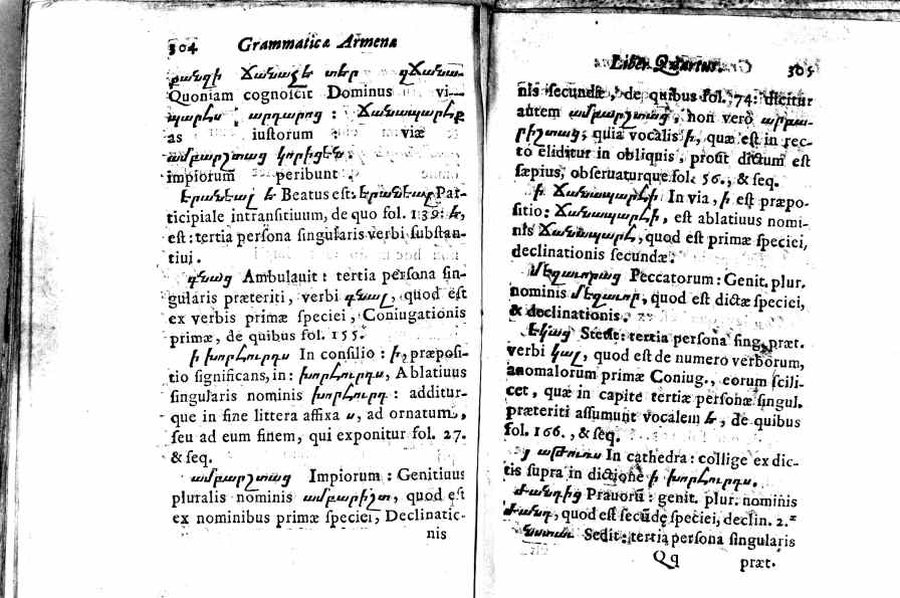 304 Grammatica Armena
քանզի ճանաչէ տէր զճանա-
Quoniam cognoscit Dominus vi-
պարհս արդարոց : ճանապարհք
as iustorum : viæ
ամբարշտաց կորիցեն.
impiorum peribunt.
երանեալ է Beatus est: երանեալ Par-
ticipiale intransitiuum, de quo fol. 139: է,
est: tertia persona singularis verbi substan-
tiui.
գնաց Ambulauit: tertia persona sin-
gularis præteriti, verbi գնալ, quod est
ex verbis primæ speciei, Coniugationis
primæ, de quibus fol. 155.
ի խորհուրդս In consilio: ի, præposi-
tio significans, in: խորհուրդս, Ablatiuus
singularis nominis խորհուրդ: additur-
que in fine littera affixa ս, ad ornatum,
seu ad eum finem, qui exponitur fol. 27.
& seq.
ամբարշտաց Impiorum: Genitiuus
pluralis nominis ամբարիշտ, quod est
ex nominibus primæ speciei, Declinatio-
nis
Liber Quartus. 305
nis secundæ, de quibus fol. 74: dicitur
autem ամբարշտաց, non verò ամբա-
րիշտաց; quia vocalis ի, quæ est in rec-
to eliditur in obliquis, prout dictum est
sæpius, obseruaturque fol. 56., & seq.
ի ճանապարհի In via, ի est præpo-
sitio; ճանապարհի, est ablatiuus nomi-
nis ճանապարհ, quod est primæ speciei,
declinationis secundæ.
մեղաւորաց Peccatorum: Genit. plur.
nominis մեղաւոր, quod est dictæ speciei,
& declinationis.
եկաց Stetit: tertia persona sing. præt.
verbi կալ, quod est de numero verborum,
anomalorum primæ Coniug., eorum scili-
cet, quæ in capite tertiæ personæ singul.
præteriti assumunt vocalem ե, de quibus
fol. 166., & seq.
յ աթոռս In cathedra: collige ex dic-
tis supra in dictione ի խորհուրդս.
ժանդից Prauorū: genit. plur. nominis
ժանդ, quod est secūdę speciei, declin. 2.ª
նստաւ Sedit: tertia persona singularis
Qq præt.